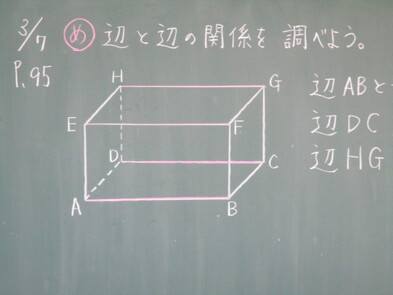 3/7 め 辺と辺の関係を 調べよう。
P.95
H
G
辺ABと
E
F
辺DC
D
C
辺HG
A
B